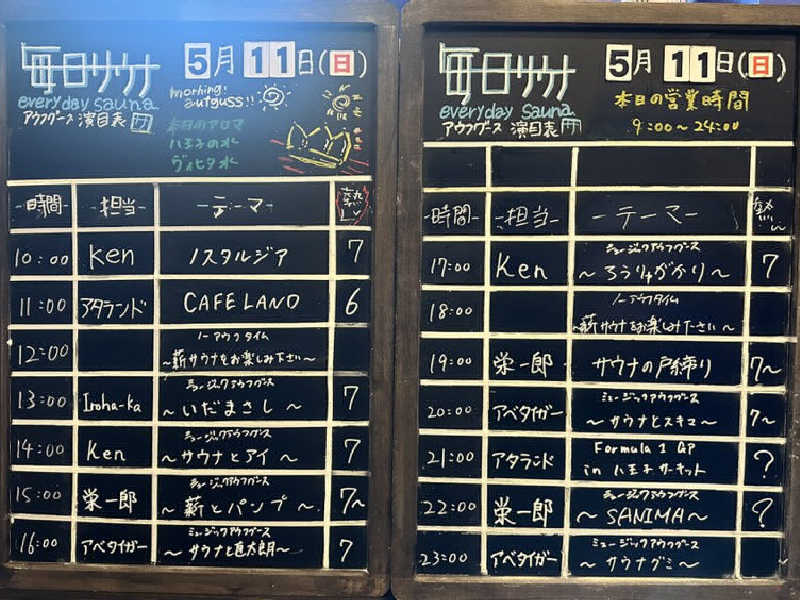 毎日サウナ
5月11日(日)
everyday sauna
アウフグース 演目表
morning aufguss!!
本日のアロマ
八王子の水
ヴィヒタ水
時間 担当 テーマ 熱い
10:00 Ken ノスタルジア 7
11:00 アタランド CAFE LAND 6
12:00 ノーアウフタイム
～薪サウナをお楽しみ下さい～
13:00 Iroha-ka ミュージックアウフグース
～いだまさし～ 7
14:00 Ken ミュージックアウフグース
～サウナとアイ～ 7
15:00 栄一郎 ミュージックアウフグース
～薪とパンプ～ 7～
16:00 アベタイガー ミュージックアウフグース
～サウナと直太朗～ 7
毎日サウナ
5月11日(日)
everyday sauna
アウフグース 演目表
本日の営業時間
9:00～24:00
時間 担当 テーマ 熱い
17:00 Ken ミュージックアウフグース
～ろうりゅがかり～ 7
18:00 ノーアウフタイム
～薪サウナをお楽しみ下さい～
19:00 栄一郎 サウナの戸締り 7～
20:00 アベタイガー ミュージックアウフグース
～サウナとスキマ～ 7～
21:00 アタランド Formula 1 GP
in 八王子サーキット ?
22:00 栄一郎 ミュージックアウフグース
～SANIMA～ ?
23:00 アベタイガー ミュージックアウフグース
～サウナグミ～